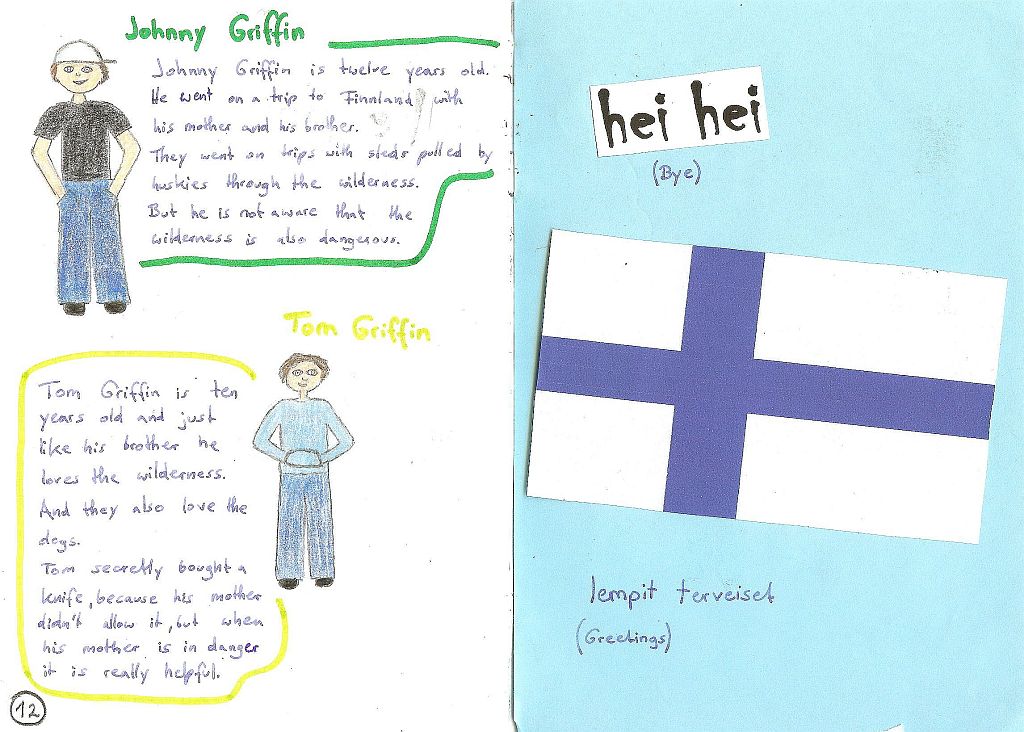 Johnny Griffin
Johnny Griffin is twelve years old.
He went on a trip to Finnland with
his mother and his brother.
They went on trips with sleds pulled by
huskies through the wilderness.
But he is not aware that the
wilderness is also dangerous.
Tom Griffin
Tom Griffin is ten
years old and just
like his brother he
loves the wilderness.
And they also love the
dogs.
Tom secretly bought a
knife, because his mother
didn't allow it, but when
his mother is in danger
it is really helpful.
12
hei hei
(Bye)
lempit terveiset
(Greetings)